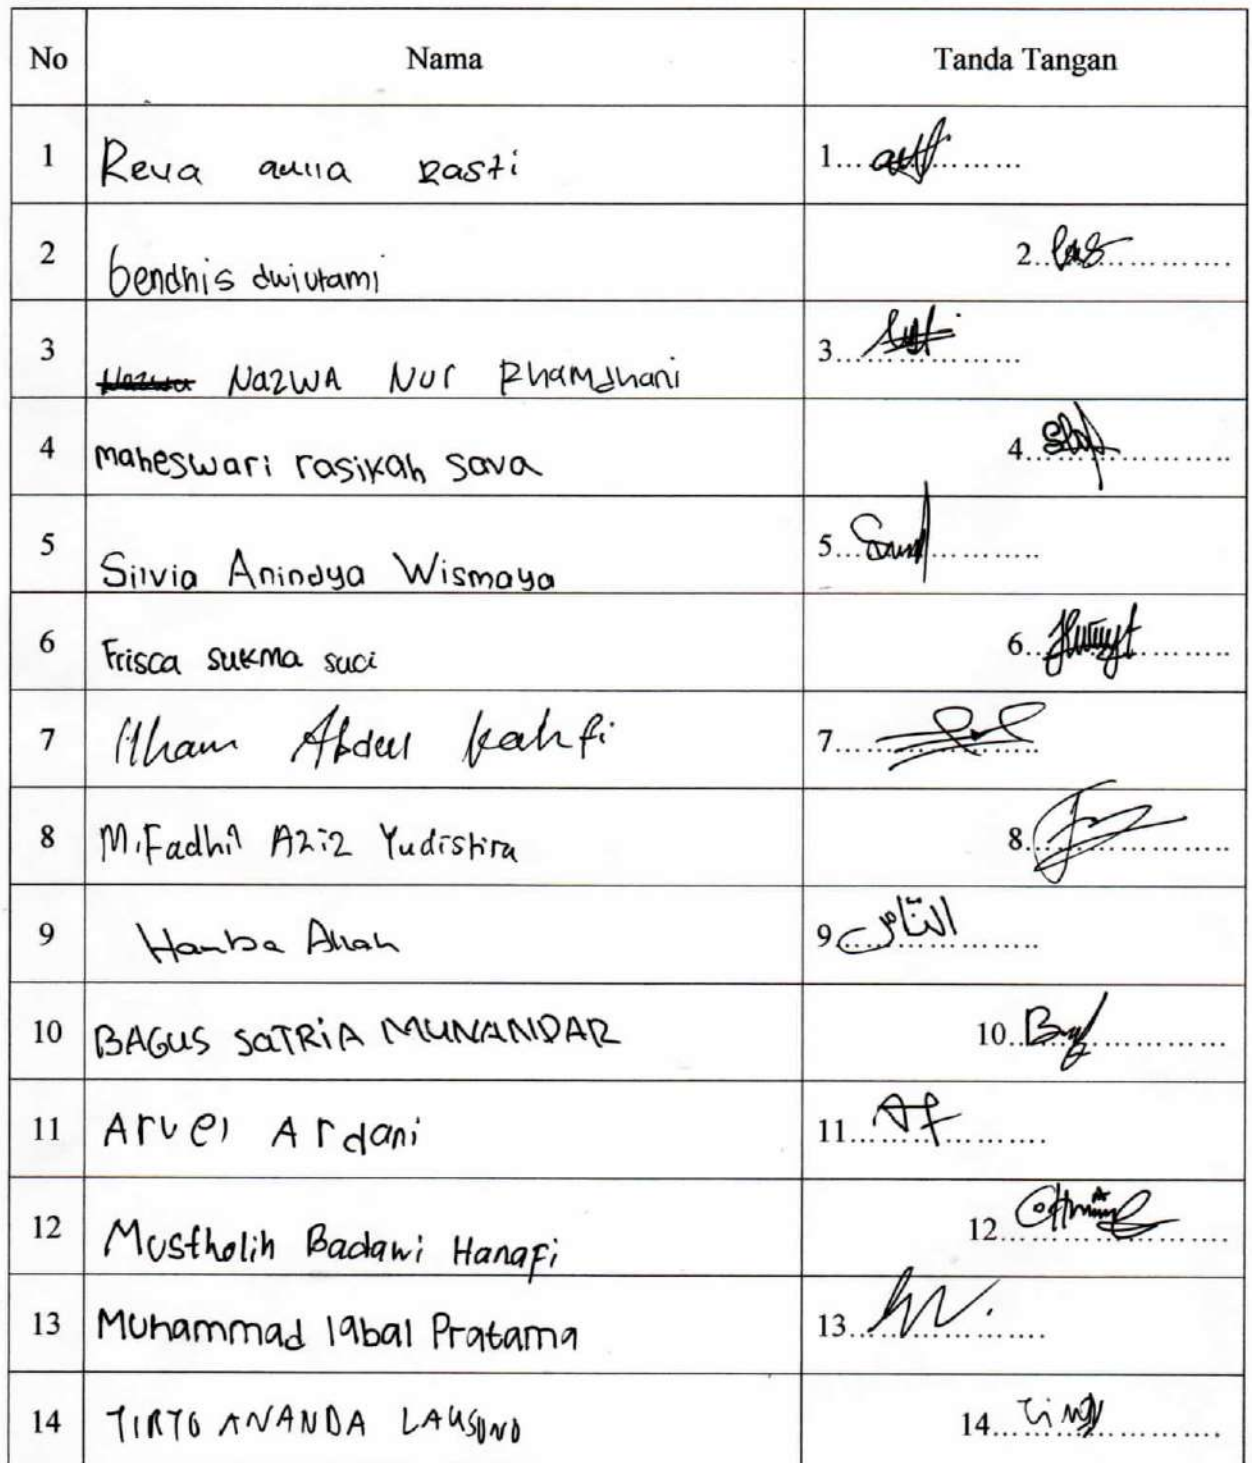 No Nama Tanda Tangan
1 Reva aulia Rasti 1...
2 bendhis dwiutami 2...
3 Nazwa NazWA NUr RhamdHani 3...
4 maheswari rasikah sava 4...
5 Silvia Anindya Wismaya 5...
6 Frisca sukma suci 6...
7 Ilham Abdul kahfi 7...
8 M.Fadhil Aziz Yudistira 8...
9 Hamba Allah 9...
10 BAGUS SATRiA MUNANDAR 10...
11 Arvel Ardani 11...
12 Mustholih Badawi Hanafi 12...
13 Muhammad Iqbal Pratama 13...
14 TIRTO ANANDA LAKSONO 14...